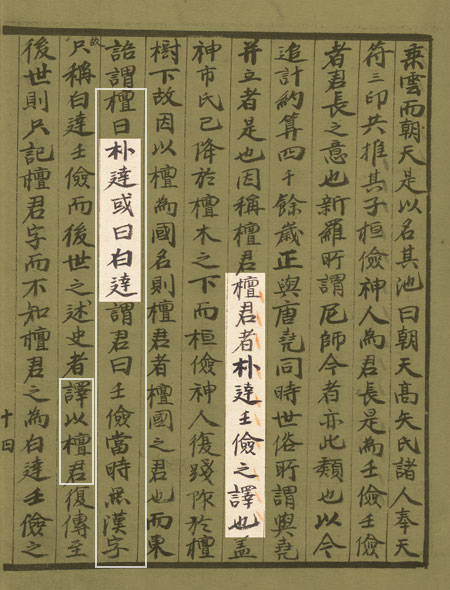 乘雲而朝天是以名其池曰朝天高矢氏諸人奉天
符三印共推其子桓儉神人為君長是為壬儉壬儉
者君長之意也新羅所謂尼師今者亦此類也以今
追計約算四千餘歲正與唐堯同時世俗所謂與堯
并立者是也因稱檀君檀君者朴達壬儉之譯也盖
神市氏已降於檀木之下而桓儉神人復踐阼於檀
樹下故因以檀為國名則檀君者檀國之君也而東
語謂檀曰朴達或曰白達謂君曰壬儉當時無漢字
故只稱白達壬儉而後世之述史者譯以檀君復傳至
後世則只記檀君字而不知檀君之為白達壬儉之
十四